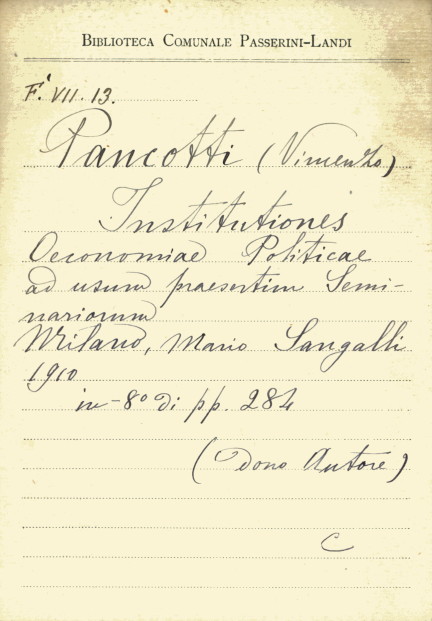 BIBLIOTECA COMUNALE PASSERINI-LANDI
F.' VII. 13.
Pancotti (Vincenzo)
Institutiones
Oeconomiae Politicae
ad usum praesertim Semi-
nariorum
Milano, Mario Sangalli
1910
in-8º di pp. 284
(Dono Autore)
C